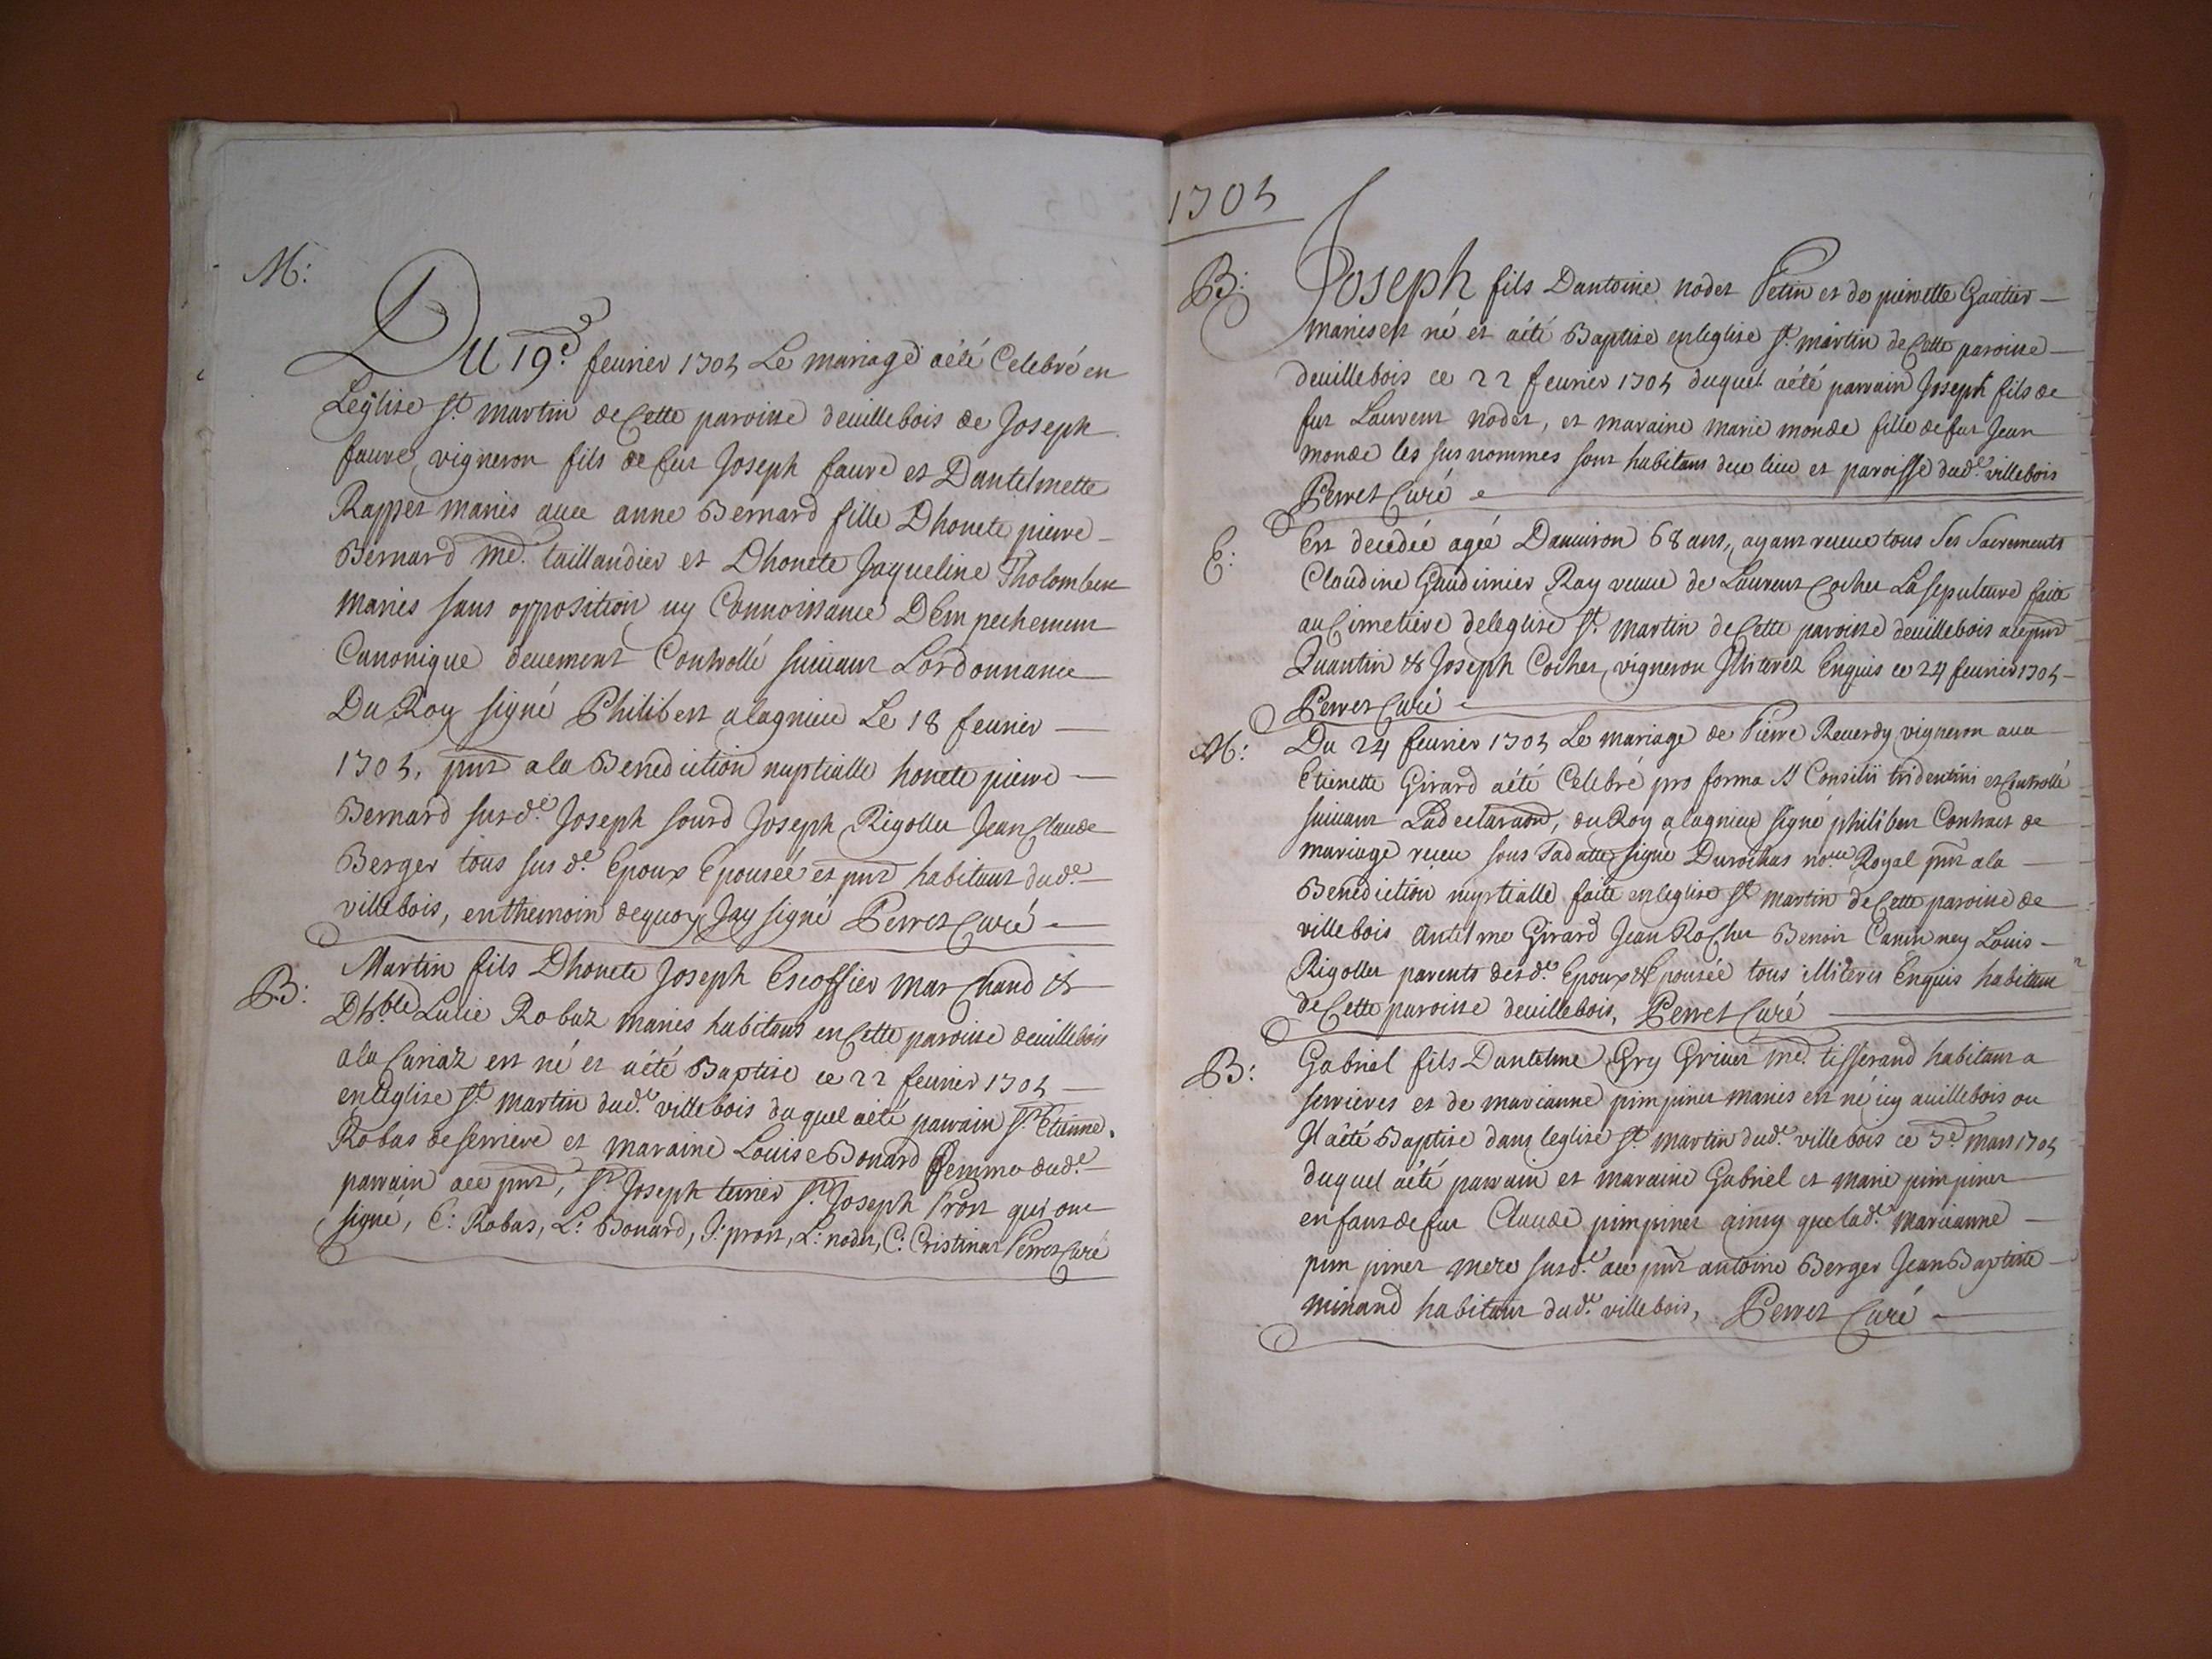 M:
Du 19e. feurier 1705 Le mariage aété Celebré en
Leglise St. martin deCette paroisse deuillebois de Joseph
faure, vigneron fils de feu Joseph faure et Dantelmette
Rappet mariés auec anne Bernard fille Dhonete pierre
Bernard me. taillandier et Dhonete Jaqueline Tholombert
mariés sans opposition ny Connoissance DEmpechement
Canonique deuement Controllé suiuant Lordonnance
Du Roy signé Philibert alagnieu Le 18 feurier
1705, pnt ala Benediction nuptialle honete pierre
Bernard susde. Joseph sourd Joseph Rigollet JeanClaude
Berger tous susde. Epoux Epouseé et pnt habitant dude.
villebois, enthemoin dequoy Jay signé Perret Curé
B:
Martin fils Dhonete Joseph Escoffier marchand &
Dhble Lucie Robaz mariés habitans enCette paroisse deuillebois
ala Cariaz est né et aété Baptisé ce 22 feurier 1705
enleglise St martin dude. villebois duquel aété parrain sr. Etienne
Robas deserriere et maraine Louise Bonard femme dude.
parrain ace pnt, sr. Joseph ternier sr. Joseph Prost qui ont
signé, E: Robas, L: Bonard, J: prost, L: nodet, C: Cristinat Perret Curé
1705
B:
Joseph fils Dantoine nodet Petin et de pierrette Gautier
mariés est né et aété Baptisé enleglise St. martin deCette paroisse
deuillebois ce 22 feurier 1705 duquel aété parrain Joseph fils de
fut Laurent nodet, et maraine marie monde fille de fut Jean
monde les susnommes sont habitans duu lieu et paroisse dude. villebois
Perret Curé
E:
Est decedée ageé Danuiron 68 ans, ayant receue tous ses sacrements
Claudine Gaudinier Ray veuue de Laurent Cochet La sepulture faite
au Cimetiere deleglise St. martin deCette paroisse deuillebois acepnt
Quantin & Joseph Cochet, vigneron Jlliterez Enquis ce 24 feurier 1705
Perret Curé
M:
Du 24 feurier 1705 Le mariage de Pierre Reuerdy vigneron auec
Etienette Girard aété Celebré pro forma St Consilii tridentini et Controllé
suiuant Ladeclaraond, du Roy alagnieu signé philibert Contract de
mariage receu sous sadatte signé Durochas nore Royal pnt ala
Benediction nuptialle faite enleglise St martin deCette paroisse de
villebois Antelme Girard Jean Rochet Benoit Louis
Rigollet parents desde. Epoux & Epousée tous illiterés Enquis habitant
deCette paroisse deuillebois, Perret Curé
B:
Gabriel fils Dantelme Gry Griuet me. tisserand habitant a
serrieres et de marianne pimpinet mariés est né icy auillebois ou
Jl aété Baptisé dans leglise St martin dude. villebois ce 3e. mars 1705
duquel aété parrain et maraine Gabriel et marie pimpinet
enfans de fut Claude pimpinet ainsy que lade. marianne
pimpinet mere susde. ace pnt antoine Berger Jean Baptiste
minand habitant dude. villebois, Perret Curé